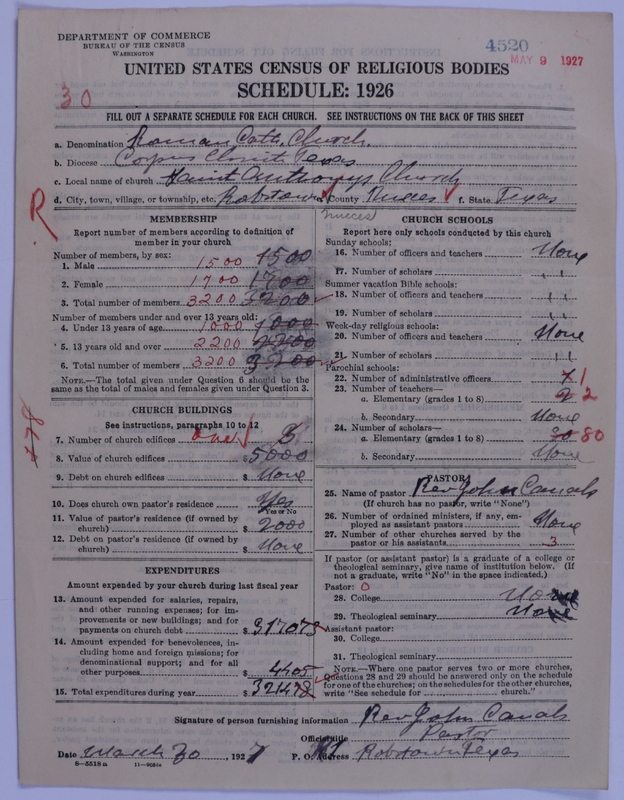 DEPARTMENT OF COMMERCE
BUREAU OF THE CENSUS
WASHINGTON
4520
MAY 9 1927
UNITED STATES CENSUS OF RELIGIOUS BODIES
SCHEDULE: 1926
30
FILL OUT A SEPARATE SCHEDULE FOR EACH CHURCH. SEE INSTRUCTIONS ON THE BACK OF THIS SHEET
a. Denomination Roman Cath. Church.
b. Diocese Corpus Christi Texas
c. Local name of church Saint Anthonys Church
d. City, town, village, or township, etc. Robstown e. County Nueces f. State Texas
Nueces
R
MEMBERSHIP
Report number of members according to definition of member in your church
Number of members, by sex:
1. Male 1500 1500
2. Female 1700 1700
3. Total number of members 3200 3200
Number of members under and over 13 years old:
4. Under 13 years of age 1000 1000
5. 13 years old and over 2200 2200
6. Total number of members 3200 3200
NOTE.—The total given under Question 6 should be the same as the total of males and females given under Question 3.
CHURCH BUILDINGS
See instructions, paragraphs 10 to 12
7. Number of church edifices one 3
8. Value of church edifices $ 5000
9. Debt on church edifices $ None
10. Does church own pastor's residence Yes
Yes or No
11. Value of pastor's residence (if owned by church) $ 2000
12. Debt on pastor's residence (if owned by church) $ None
EXPENDITURES
Amount expended by your church during last fiscal year
13. Amount expended for salaries, repairs, and other running expenses; for improvements or new buildings; and for payments on church debt $ 317073
14. Amount expended for benevolences, including home and foreign missions; for denominational support; and for all other purposes $ 4405
15. Total expenditures during year $ 321478
CHURCH SCHOOLS
Report here only schools conducted by this church
Sunday schools:
16. Number of officers and teachers None
17. Number of scholars "
Summer vacation Bible schools:
18. Number of officers and teachers "
19. Number of scholars "
Week-day religious schools:
20. Number of officers and teachers None
21. Number of scholars "
Parochial schools:
22. Number of administrative officers 1
23. Number of teachers—
a. Elementary (grades 1 to 8) 2 2
b. Secondary None
24. Number of scholars—
a. Elementary (grades 1 to 8) 80 80
b. Secondary None
PASTOR
25. Name of pastor Rev John Canals
(If church has no pastor, write "None")
26. Number of ordained ministers, if any, employed as assistant pastors None
27. Number of other churches served by the pastor or his assistants 3
If pastor (or assistant pastor) is a graduate of a college or theological seminary, give name of institution below. (If not a graduate, write "No" in the space indicated.)
Pastor: 0
28. College None
29. Theological seminary None
Assistant pastor:
30. College
31. Theological seminary
NOTE.—Where one pastor serves two or more churches, Questions 28 and 29 should be answered only on the schedule for one of the churches; on the schedules for the other churches, write "See schedule for church."
Signature of person furnishing information Rev John Canals
Official title Pastor
Date March 30, 1927 P. O. Address Robstown Texas
8—5318a 11—9051a